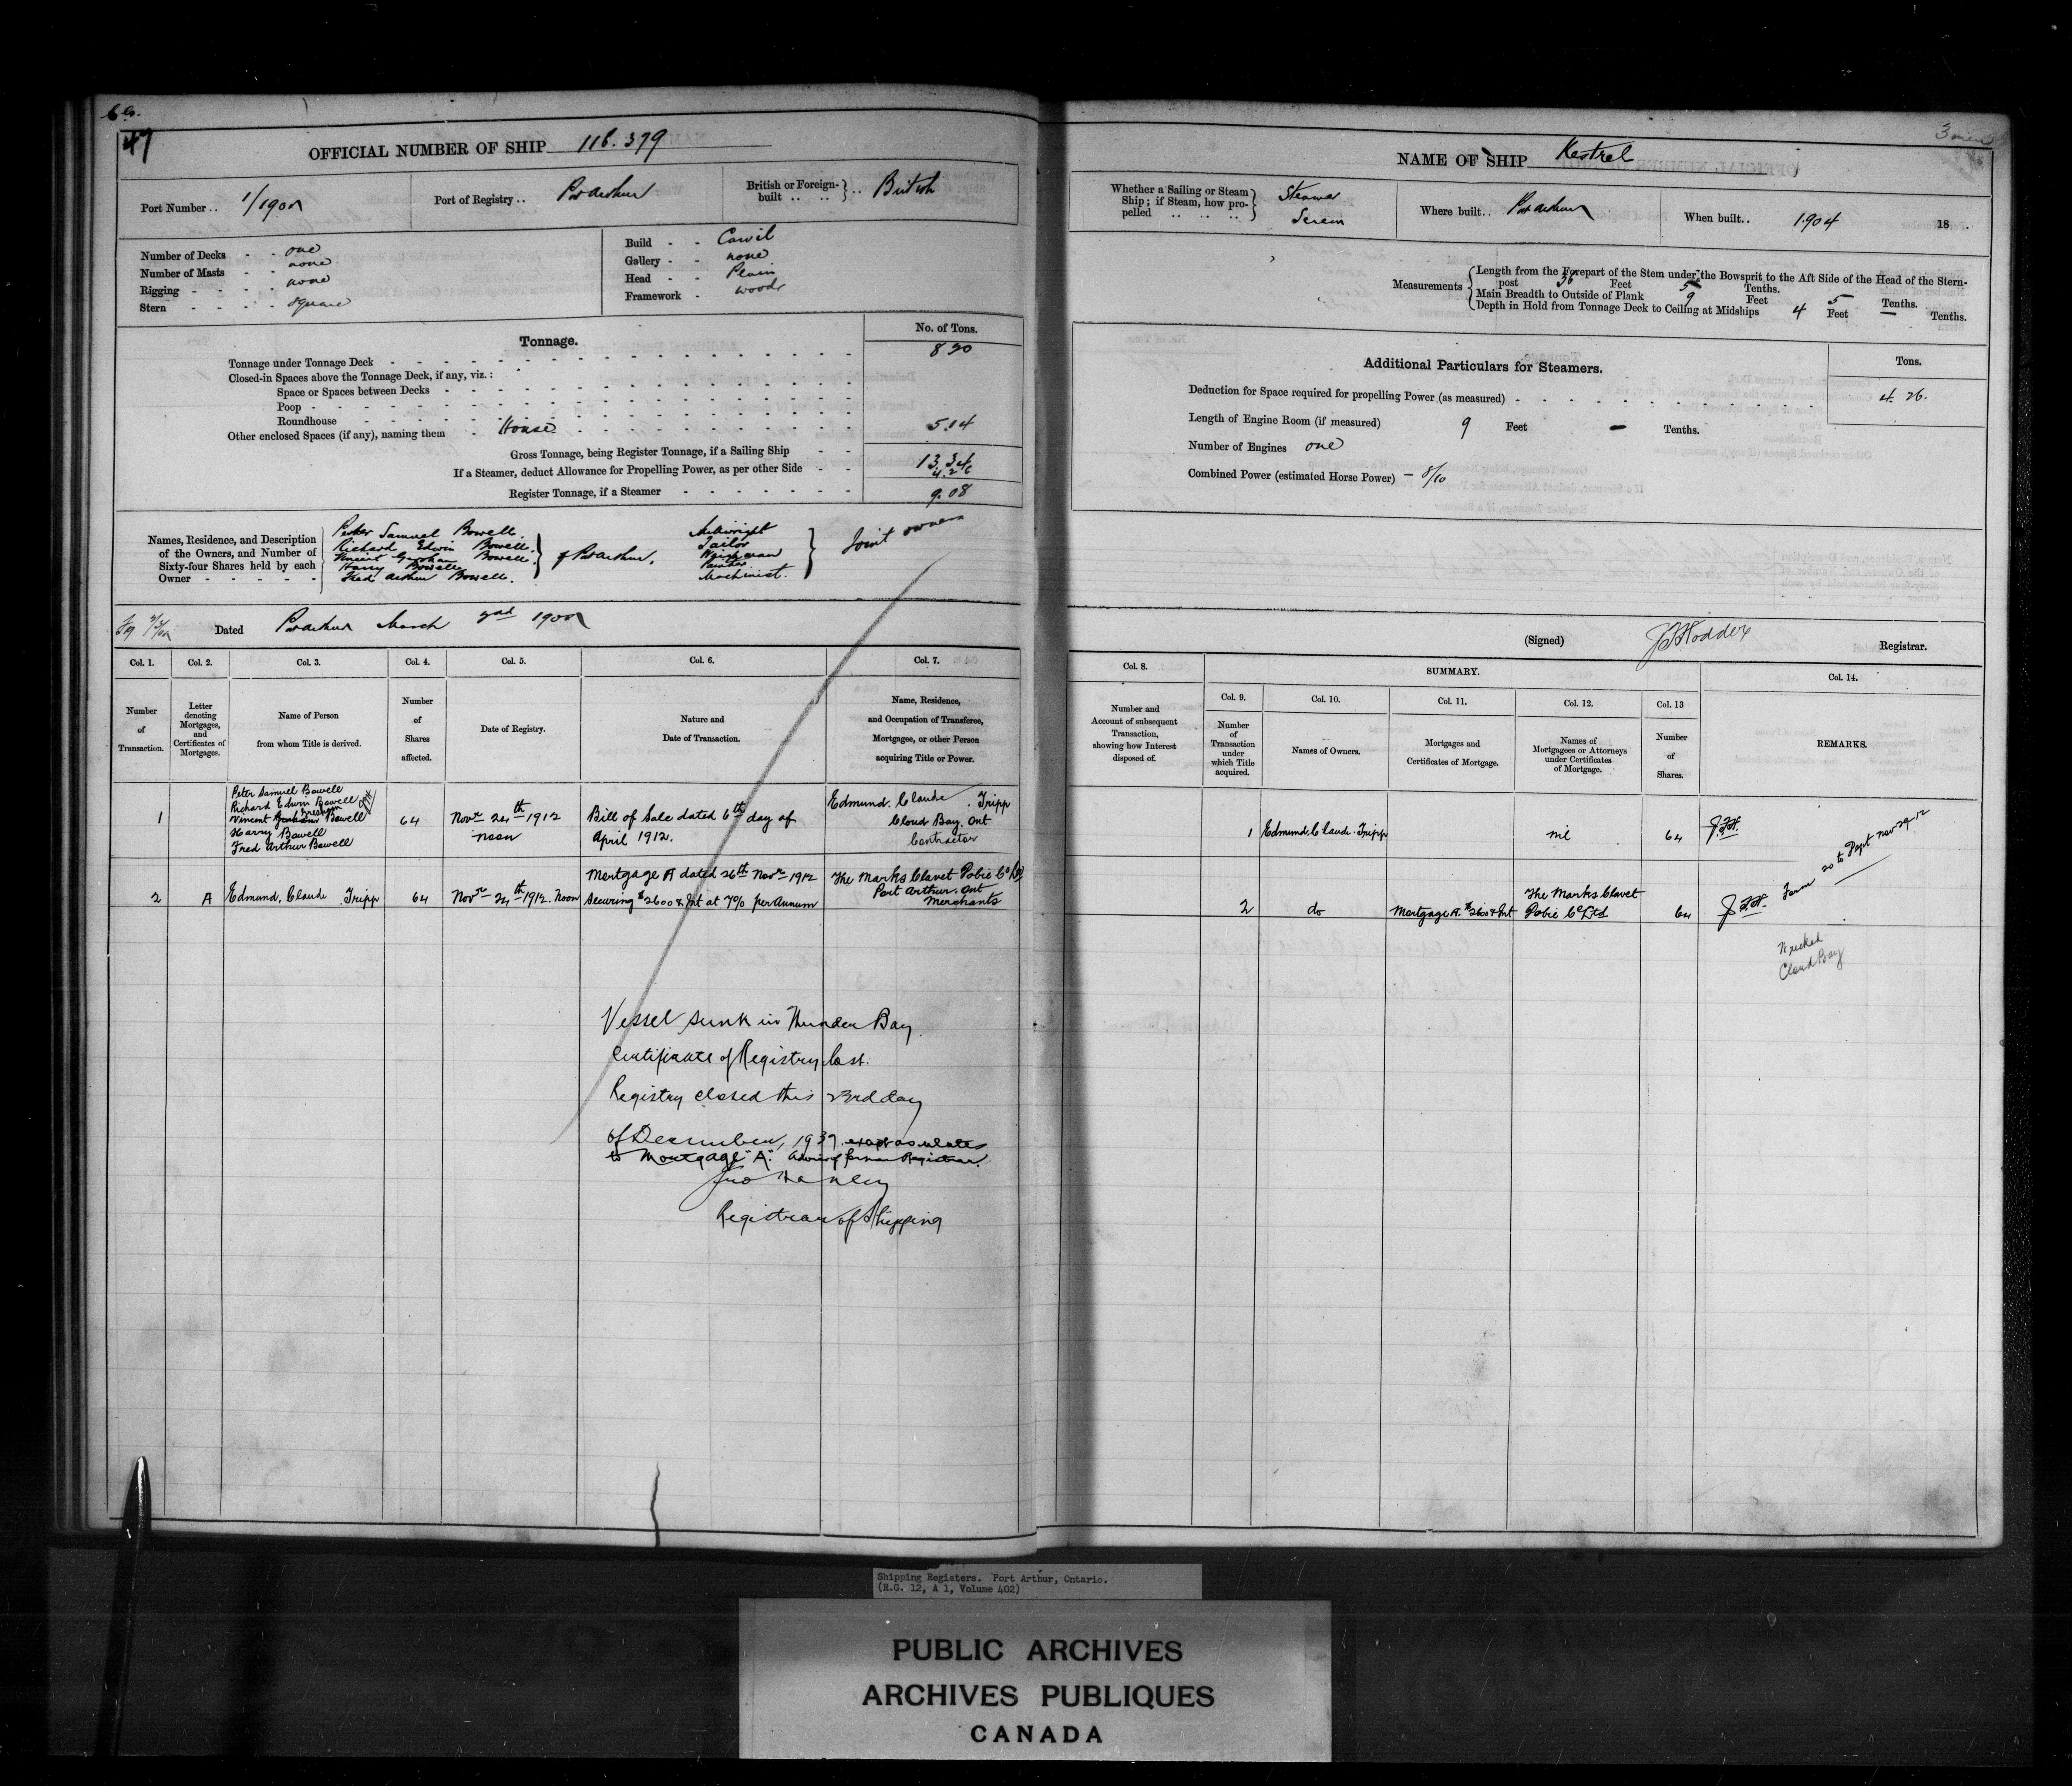 47
OFFICIAL NUMBER OF SHIP 116.379
Port Number ..
Port of Registry .. Pt Arthur
British or Foreign-built .. .. } .. British
Number of Decks - - one
Number of Masts - - none
Rigging - - - - none
Stern - - - - square
Build - - Carvil
Gallery - - none
Head - - Plain
Framework - wood
Tonnage.
No. of Tons.
Tonnage under Tonnage Deck
Closed-in Spaces above the Tonnage Deck, if any, viz.:
Space or Spaces between Decks
Poop
Roundhouse
Other enclosed Spaces (if any), naming them - House 5.14
Gross Tonnage, being Register Tonnage, if a Sailing Ship 13.34
If a Steamer, deduct Allowance for Propelling Power, as per other Side 4.26
Register Tonnage, if a Steamer 9.08
Names, Residence, and Description of the Owners, and Number of Sixty-four Shares held by each Owner
Peter Samuel Bowell.
Richard Edwin Bowell.
Vincent Bowell.
Harry Bowell
Fred Arthur Bowell.
of Pt Arthur.
Tailor
Painter
Machinist.
Joint owners
Dated Pt Arthur March
Col. 1.
Col. 2.
Col. 3.
Col. 4.
Col. 5.
Col. 6.
Col. 7.
Number of Transaction.
Letter denoting Mortgages, and Certificates of Mortgages.
Name of Person from whom Title is derived.
Number of Shares affected.
Date of Registry.
Nature and Date of Transaction.
Name, Residence, and Occupation of Transferee, Mortgagee, or other Person acquiring Title or Power.
1
Peter Samuel Bowell
Richard Edwin Bowell
Vincent Graham Bowell
Harry Bowell
Fred Arthur Bowell
64
Novr 24th 1912
noon
Bill of Sale dated 6th day of
April 1912.
Edmund. Claude. Tripp
Cloud Bay. Ont
Contractor
2
A
Edmund. Claude. Tripp
64
Novr 24th 1912. Noon
Mortgage A dated 26th Novr 1912
Securing $2600 & Int at 7% per Annum
The Marks Clavet Dobie Co Ltd
Port Arthur. Ont
Merchants
Vessel sunk in Thunder Bay.
Certificate of Registry lost.
Registry closed this 23rd day
of December, 1937 except as relates
to Mortgage "A". Advice of former Registrar.
Jno Hanley
Registrar of Shipping
NAME OF SHIP Kestrel
Whether a Sailing or Steam Ship; if Steam, how propelled .. .. .. } Steamer
Screw
Where built.. Pt Arthur
When built.. 1904 18 .
Measurements
Length from the Forepart of the Stem under the Bowsprit to the Aft Side of the Head of the Stern-
post 36 Feet 5 Tenths.
Main Breadth to Outside of Plank 9 Feet 5 Tenths.
Depth in Hold from Tonnage Deck to Ceiling at Midships 4 Feet — Tenths.
Additional Particulars for Steamers.
Tons.
Deduction for Space required for propelling Power (as measured) 4.26.
Length of Engine Room (if measured) 9 Feet — Tenths.
Number of Engines one
Combined Power (estimated Horse Power) — 8/10
(Signed) Registrar.
Col. 8.
SUMMARY.
Col. 14.
Col. 9.
Col. 10.
Col. 11.
Col. 12.
Col. 13
Number and Account of subsequent Transaction, showing how Interest disposed of.
Number of Transaction under which Title acquired.
Names of Owners.
Mortgages and Certificates of Mortgage.
Names of Mortgagees or Attorneys under Certificates of Mortgage.
Number of Shares.
REMARKS.
1
Edmund. Claude. Tripp
nil
64
2
do
Mortgage A. $2600 & Int
The Marks Clavet
Dobie Co Ltd
64
Form 20 to Dept Nov 29-12
Wrecked
Cloud Bay
Shipping Registers. Port Arthur, Ontario.
(R.G. 12, A 1, Volume 402)
PUBLIC ARCHIVES
ARCHIVES PUBLIQUES
CANADA